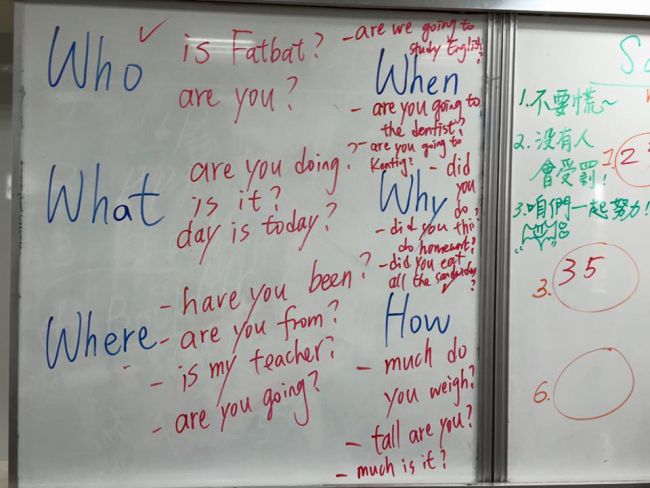 Who
is Fatbat?
are you?
What
are you doing?
is it?
day is today?
Where
- have you been?
- are you from?
- is my teacher?
- are you going?
- are we going to
study English?
When
- are you going to
the dentist?
- are you going to
Kenting?
Why
- did
you
do?
- did you this
do homework?
- did you eat
all the sandwiches
?
How
- much do
you weigh?
- tall are you?
- much is it?
1. 不要慌~
2. 沒有人
會受罰!
3. 咱們一起努力!
1. 2
3. 35
6.